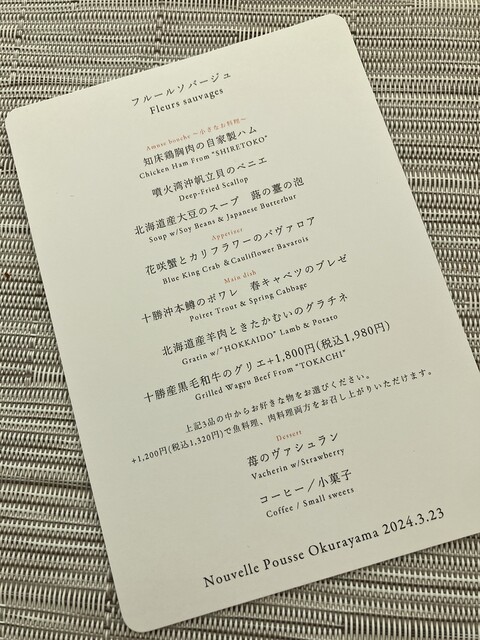 フルールソバージュ
Fleurs sauvages
Amuse bouche 〜小さなお料理〜
知床鶏胸肉の自家製ハム
Chicken Ham From "SHIRETOKO"
噴火湾沖帆立貝のベニエ
Deep-Fried Scallop
北海道産大豆のスープ 蕗の薹の泡
Soup w/Soy Beans & Japanese Butterbur
Appetizer
花咲蟹とカリフラワーのバヴァロア
Blue King Crab & Cauliflower Bavarois
Main dish
十勝沖本鱒のポワレ 春キャベツのブレゼ
Poirer Trout & Spring Cabbage
北海道産羊肉ときたかむいのグラチネ
Gratin w/"HOKKAIDO" Lamb & Potato
十勝産黒毛和牛のグリエ+1,800円(税込1,980円)
Grilled Wagyu Beef From "TOKACHI"
上記3品の中からお好きな物をお選びください。
+1,200円(税込1,320円)で魚料理、肉料理両方をお召し上がりいただけます。
Dessert
苺のヴァシュラン
Vacherin w/Strawberry
コーヒー／小菓子
Coffee / Small sweets
Nouvelle Pousse Okurayama 2024.3.23